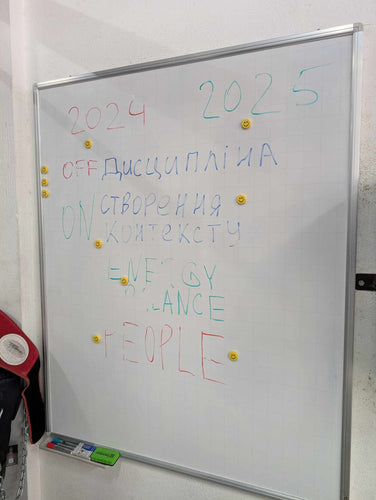 2024 2025
OFF ДИСЦИПЛІНА
ON СТВОРЕННЯ
КОНТЕКСТУ
ENERGY
BALANCE
PEOPLE